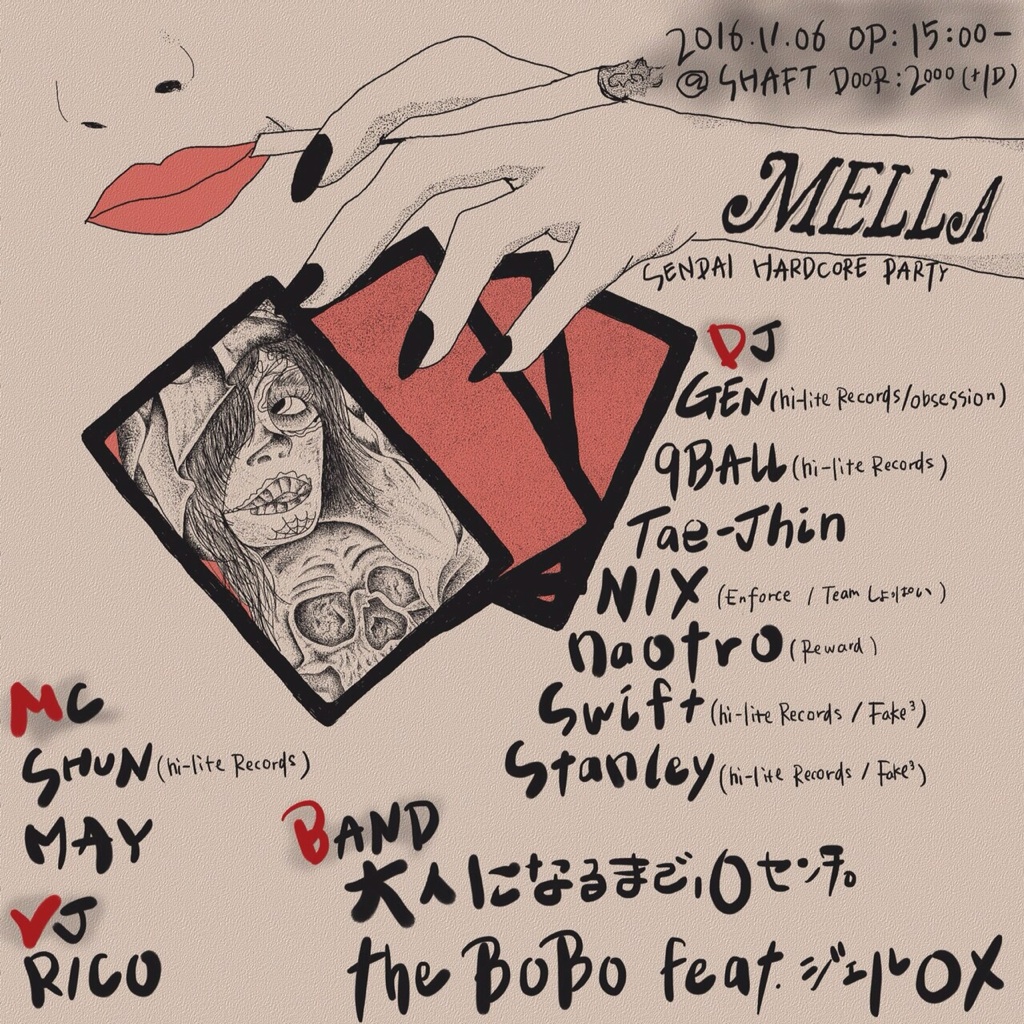 2016.11.06 OP: 15:00-
@ SHAFT DOOR: 2000 (+1D)
MELLA
SENDAI HARDCORE PARTY
DJ
GEN (hi-lite Records/obsession)
9BALL (hi-lite Records)
Tae-Jhin
NIX (Enforce / Team しょっぱい)
naotro (Reward)
Swift (hi-lite Records / Fake³)
Stanley (hi-lite Records / Fake³)
MC
SHUN (hi-lite Records)
MAY
VJ
RICO
BAND
大人になるまで、0センチ。
the BoBo feat. ジェルOX